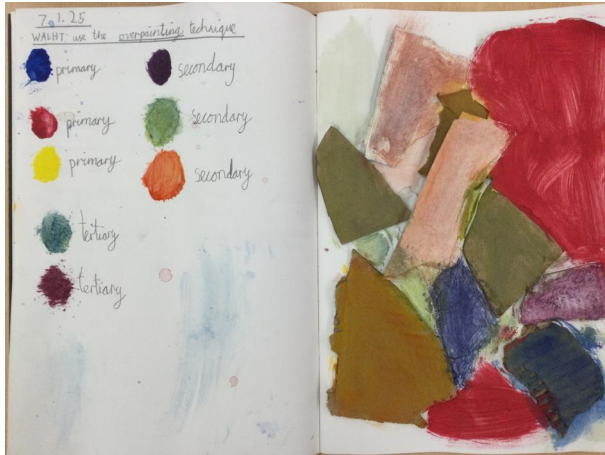 7.1.25
WALHT use the overpainting technique
primary secondary
primary secondary
primary secondary
tertiary
tertiary